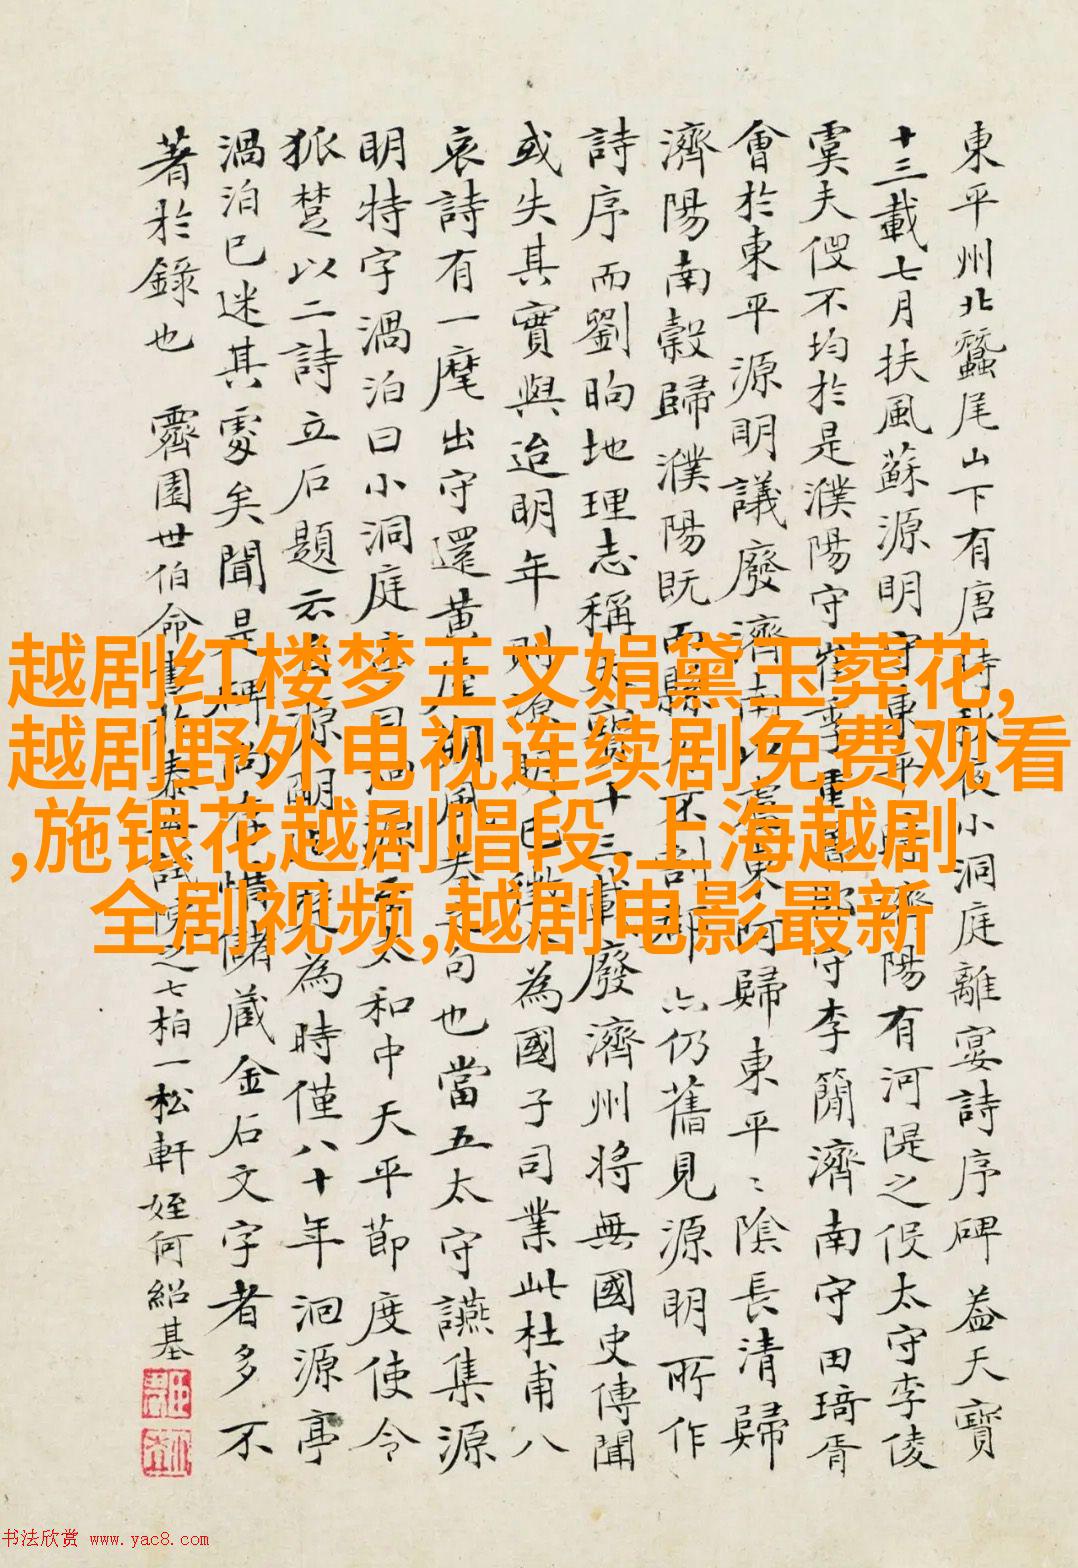 東平州北蠶尾山下有唐小洞庭離宴詩序碑 蓋天寶
十三載七月扶風蘇源明守東平陽有河隄之役太守李倰
虞夫役不均於是濮陽守崔季重守李簡濟南守田琦胥
會於東平源明議廢濟南以東阿歸東平〻陰長清歸
濟陽南穀歸濮陽既而縣不割郡亦仍舊見源明所作
詩序而劉昫地理志稱天寶十三載廢濟州將無國史傳聞
或失其實與迨明年則源明已徵為國子司業此杜甫八
哀詩有一麾出守還黃屋朔風卷句也當五太守讌集源
明特字渦泊曰小洞庭太和中天平節度使令
狐楚以二詩立石題云源明為時僅八十年洄源亭
渦泊已迷其處矣聞是碑尚在惜儲藏金石文字者多不
著於錄也 霽園世伯命書於泰之七柏一松軒 姪何紹基
越剧红楼梦王文娟黛玉葬花,
越剧野外电视连续剧免费观看
,施银花越剧唱段,上海越剧
全剧视频,越剧电影最新
书法欣赏 www.yac8.com